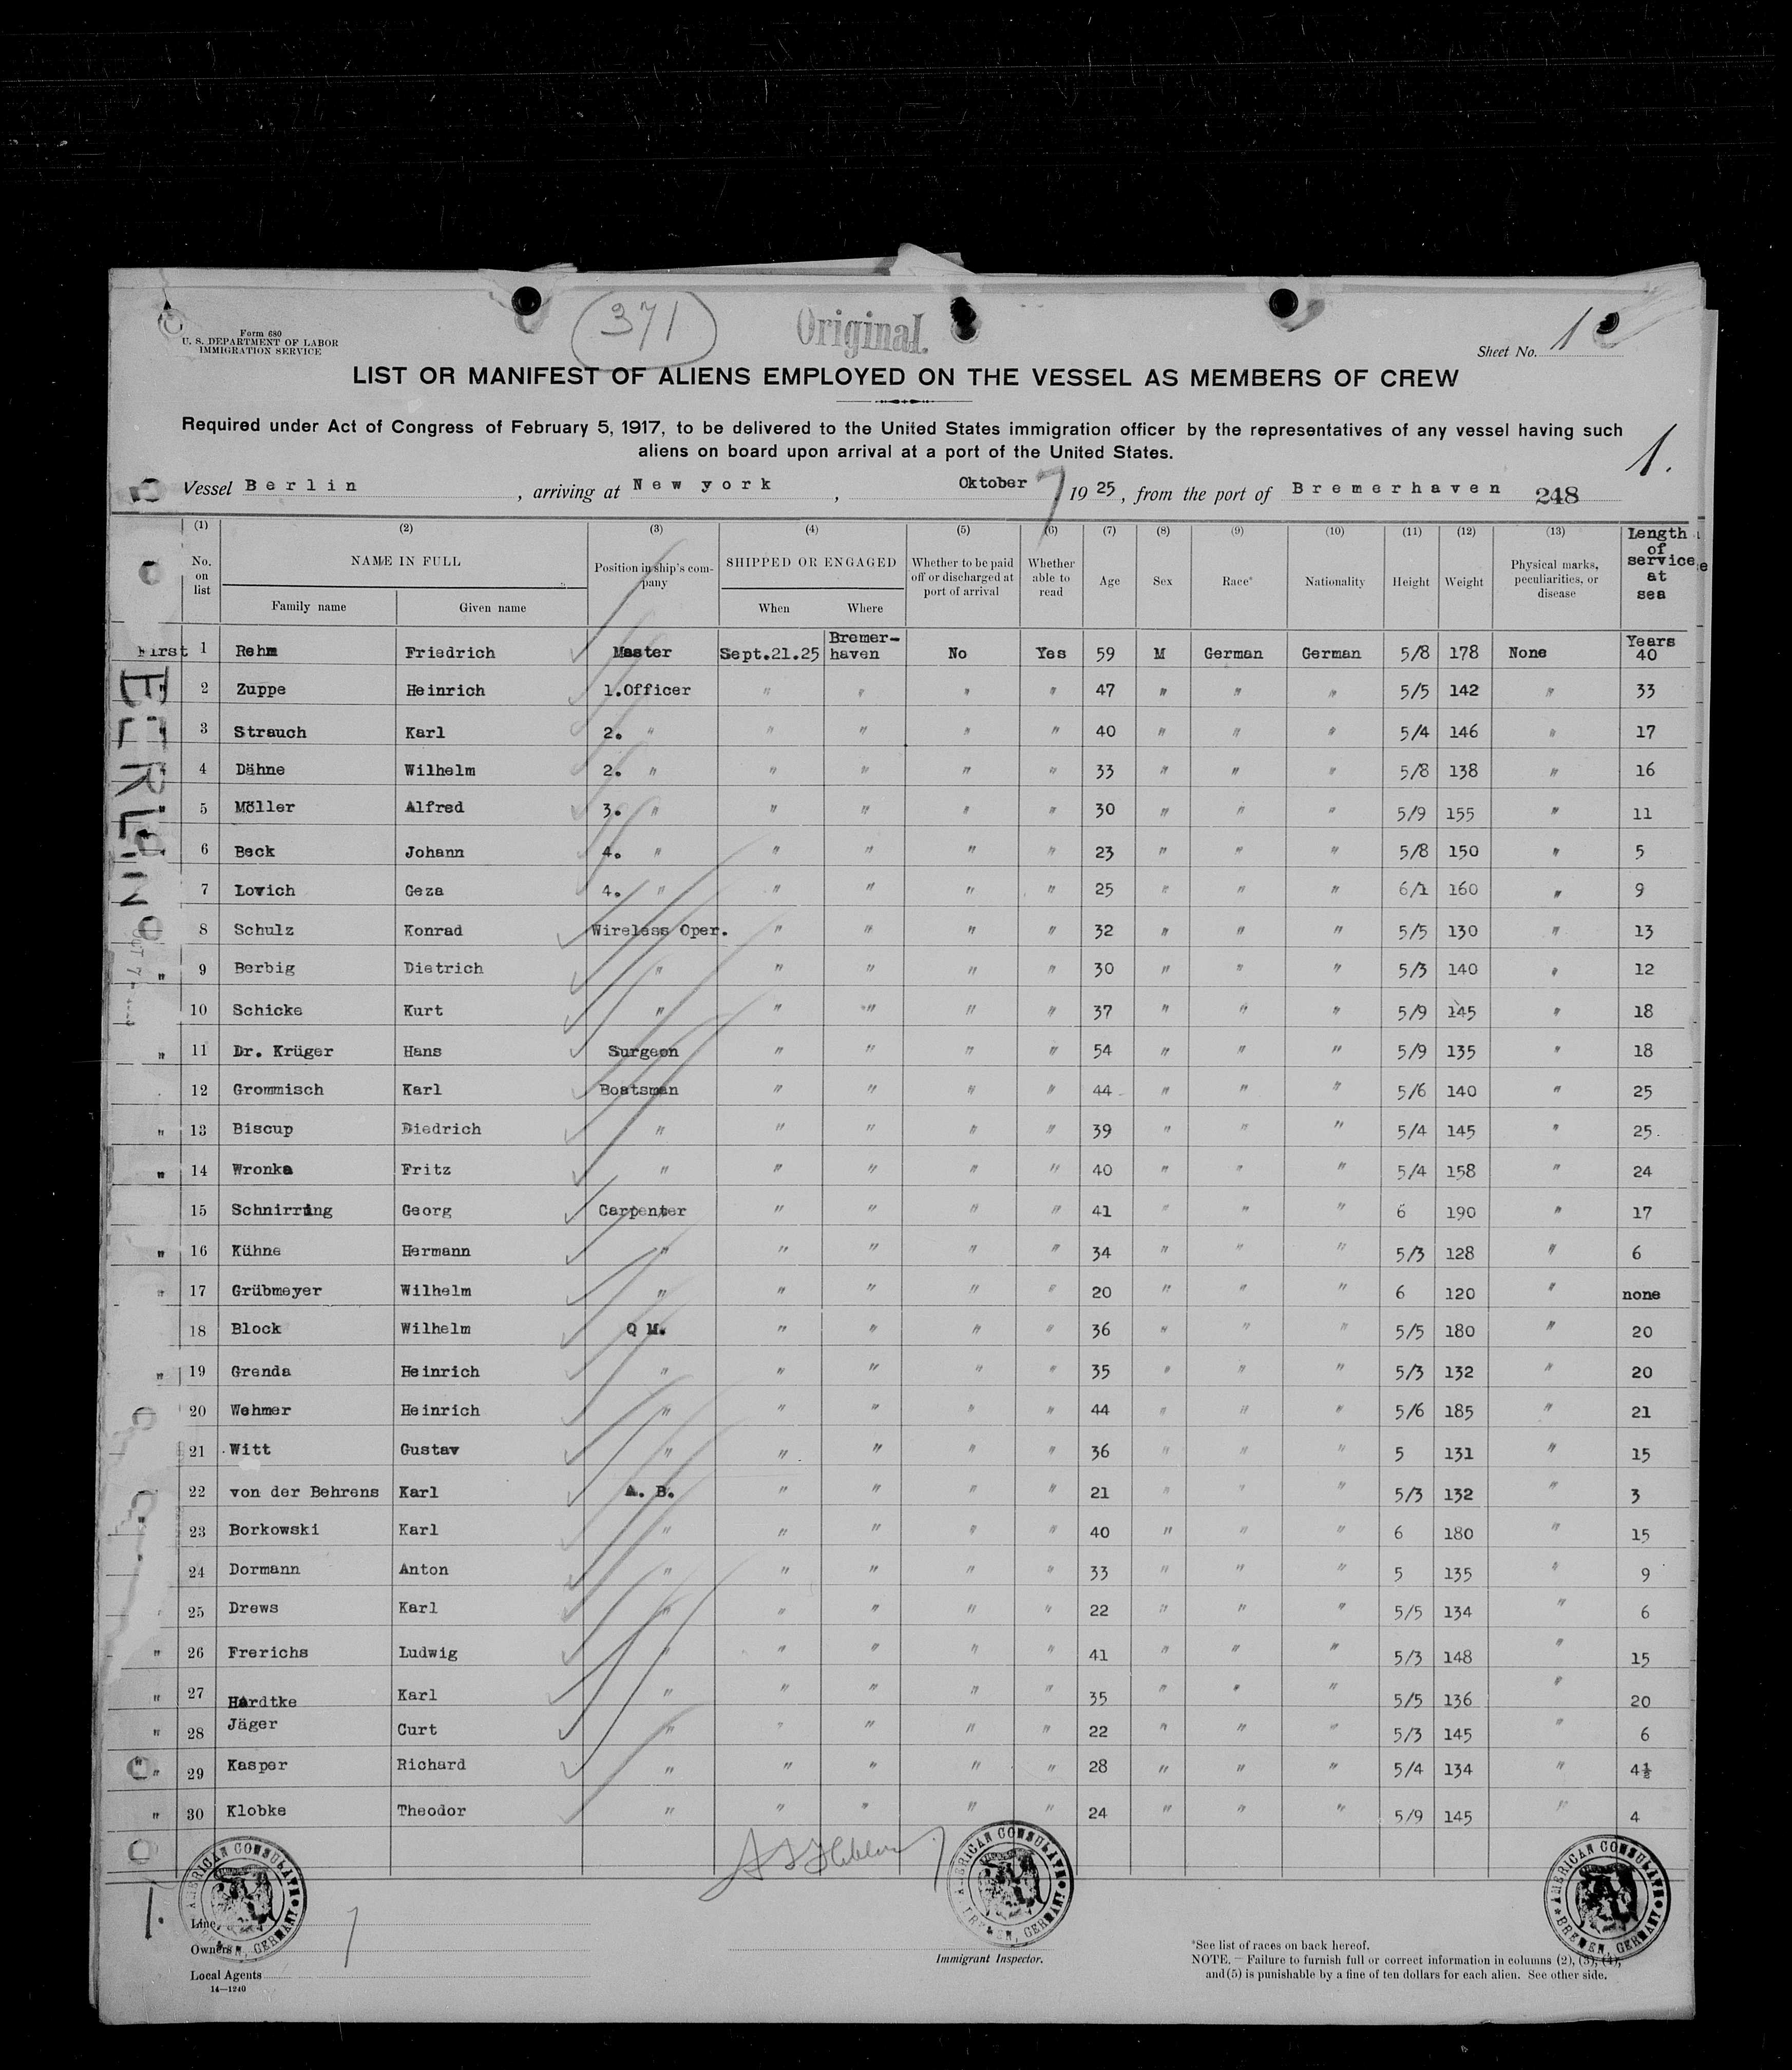 371
Original.
Form 680
U. S. DEPARTMENT OF LABOR
IMMIGRATION SERVICE
Sheet No. 1
LIST OR MANIFEST OF ALIENS EMPLOYED ON THE VESSEL AS MEMBERS OF CREW
Required under Act of Congress of February 5, 1917, to be delivered to the United States immigration officer by the representatives of any vessel having such
aliens on board upon arrival at a port of the United States.
1.
Vessel Berlin, arriving at New york, Oktober 7 1925, from the port of Bremerhaven 248
(1) (2) (3) (4) (5) (6) (7) (8) (9) (10) (11) (12) (13) Length of service at sea
No. on list NAME IN FULL Position in ship's company SHIPPED OR ENGAGED Whether to be paid off or discharged at port of arrival Whether able to read Age Sex Race* Nationality Height Weight Physical marks, peculiarities, or disease
Family name Given name When Where
First 1 Rehm Friedrich Master Sept.21.25 Bremerhaven No Yes 59 M German German 5/8 178 None Years 40
2 Zuppe Heinrich 1.Officer " " " " 47 " " " 5/5 142 " 33
3 Strauch Karl 2. " " " " " 40 " " " 5/4 146 " 17
4 Dähne Wilhelm 2. " " " " " 33 " " " 5/8 138 " 16
" 5 Möller Alfred 3. " " " " " 30 " " " 5/9 155 " 11
6 Beck Johann 4. " " " " " 23 " " " 5/8 150 " 5
7 Lovich Geza 4. " " " " " 25 " " " 6/1 160 " 9
8 Schulz Konrad Wireless Oper. " " " " 32 " " " 5/5 130 " 13
" 9 Berbig Dietrich " " " " " 30 " " " 5/3 140 " 12
10 Schicke Kurt " " " " " 37 " " " 5/9 145 " 18
" 11 Dr. Krüger Hans Surgeon " " " " 54 " " " 5/9 135 " 18
12 Grommisch Karl Boatsman " " " " 44 " " " 5/6 140 " 25
" 13 Biscup Diedrich " " " " " 39 " " " 5/4 145 " 25
" 14 Wronka Fritz " " " " " 40 " " " 5/4 158 " 24
15 Schnirring Georg Carpenter " " " " 41 " " " 6 190 " 17
" 16 Kühne Hermann " " " " " 34 " " " 5/3 128 " 6
" 17 Grübmeyer Wilhelm " " " " " 20 " " " 6 120 " none
18 Block Wilhelm Q M. " " " " 36 " " " 5/5 180 " 20
" 19 Grenda Heinrich " " " " " 35 " " " 5/3 132 " 20
20 Wehmer Heinrich " " " " " 44 " " " 5/6 185 " 21
21 Witt Gustav " " " " " 36 " " " 5 131 " 15
22 von der Behrens Karl A. B. " " " " 21 " " " 5/3 132 " 3
" 23 Borkowski Karl " " " " " 40 " " " 6 180 " 15
24 Dormann Anton " " " " " 33 " " " 5 135 " 9
" 25 Drews Karl " " " " " 22 " " " 5/5 134 " 6
" 26 Frerichs Ludwig " " " " " 41 " " " 5/3 148 " 15
" 27 Hardtke Karl " " " " " 35 " " " 5/5 136 " 20
" 28 Jäger Curt " " " " " 22 " " " 5/3 145 " 6
" 29 Kasper Richard " " " " " 28 " " " 5/4 134 " 4½
" 30 Klobke Theodor " " " " " 24 " " " 5/9 145 " 4
BERLIN
OCT 7
1.
AMERICAN CONSULATE BREMEN, GERMANY
AMERICAN CONSULATE BREMEN, GERMANY
AMERICAN CONSULATE BREMEN, GERMANY
Line
Owners
Local Agents
14—1240
Immigrant Inspector.
*See list of races on back hereof.
NOTE. — Failure to furnish full or correct information in columns (2), (3), (4),
and (5) is punishable by a fine of ten dollars for each alien. See other side.